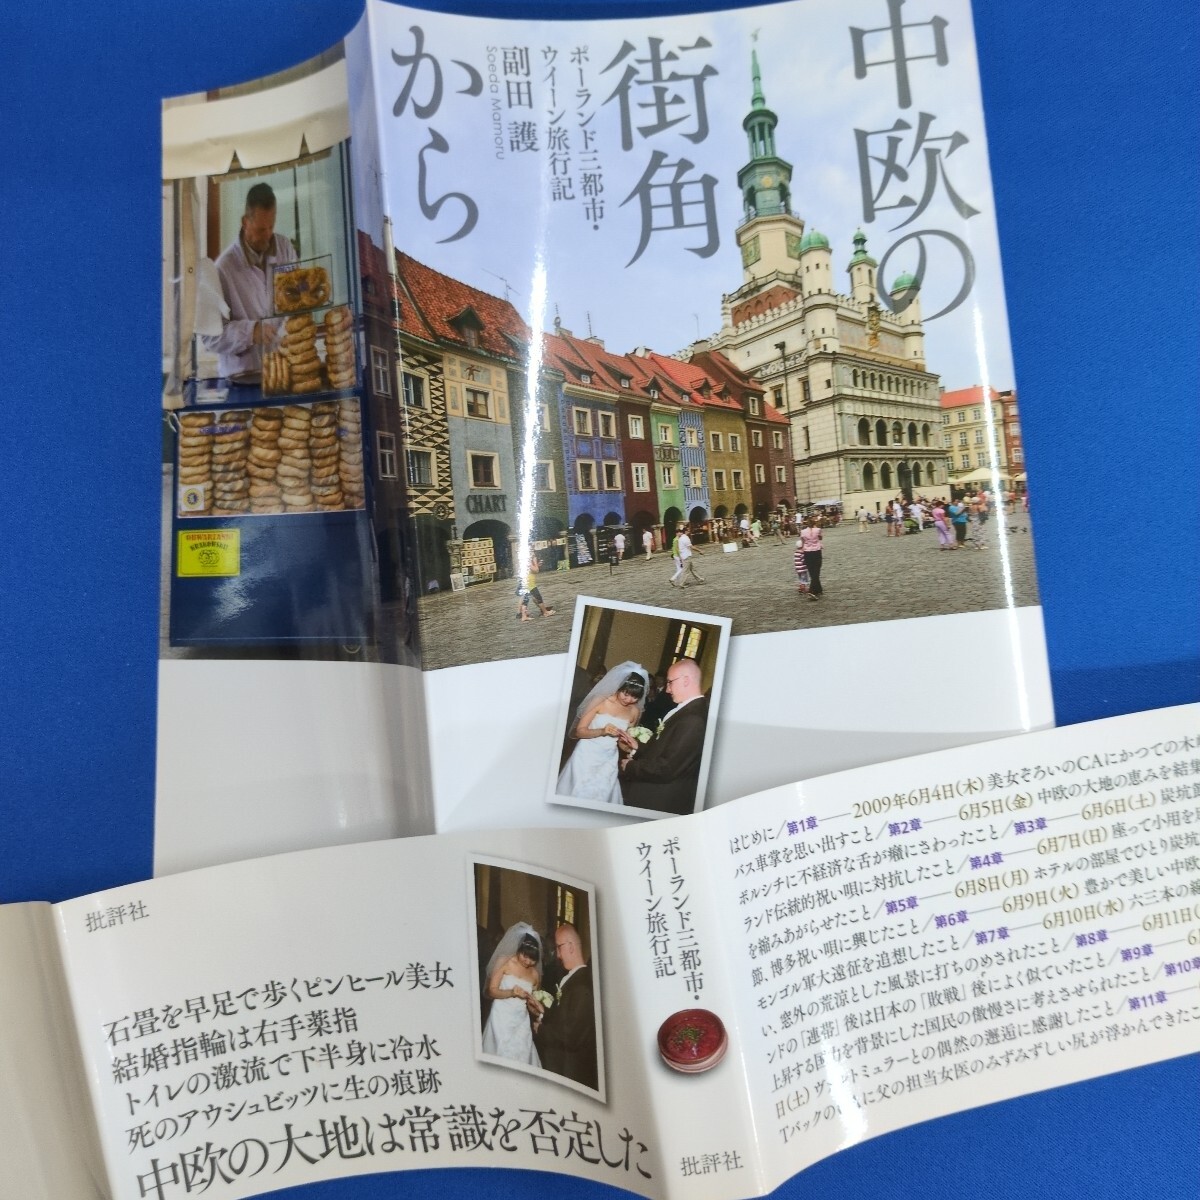 中欧の
街角
から
ポーランド三都市・
ウイーン旅行記
副田 護
Soeda Mamoru
CHART
批評社
石畳を早足で歩くピンヒール美女
結婚指輪は右手薬指
トイレの激流で下半身に冷水
死のアウシュビッツに生の痕跡
中欧の大地は常識を否定した
ポーランド三都市・
ウイーン旅行記
批評社
はじめに/第1章――2009年6月4日(木)美女ぞろいのCAにかつての木
バス車掌を思い出すこと/第2章――6月5日(金)中欧の大地の恵みを結集
ボルシチに不経済な舌が癪にさわったこと/第3章――6月6日(土)炭坑節
ランド伝統的祝い唄に対抗したこと/第4章――6月7日(日)座って小用を
を縮みあがらせたこと/第5章――6月8日(月)ホテルの部屋でひとり炭坑
節、博多祝い唄に興じたこと/第6章――6月9日(火)豊かで美しい中欧
モンゴル軍大遠征を追想したこと/第7章――6月10日(水)六三本の
い、窓外の荒涼とした風景に打ちのめされたこと/第8章――6月11日
ンドの「連帯」後は日本の「敗戦」後によく似ていたこと/第9章――
上昇する国力を背景にした国民の傲慢さに考えさせられたこと/第10章
日(土)ヴァルトミュラーとの偶然の邂逅に感謝したこと/第11章――
Tバックの に父の担当女医のみずみずしい尻が浮かんできたこ